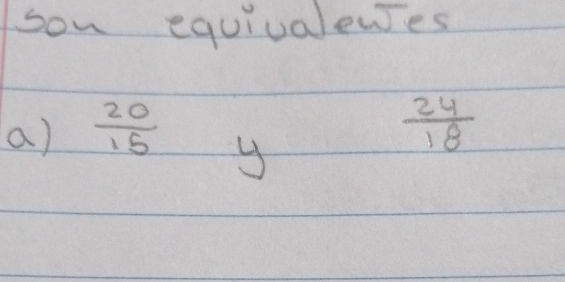 son equivalentes
a) 20/15 y 24/18